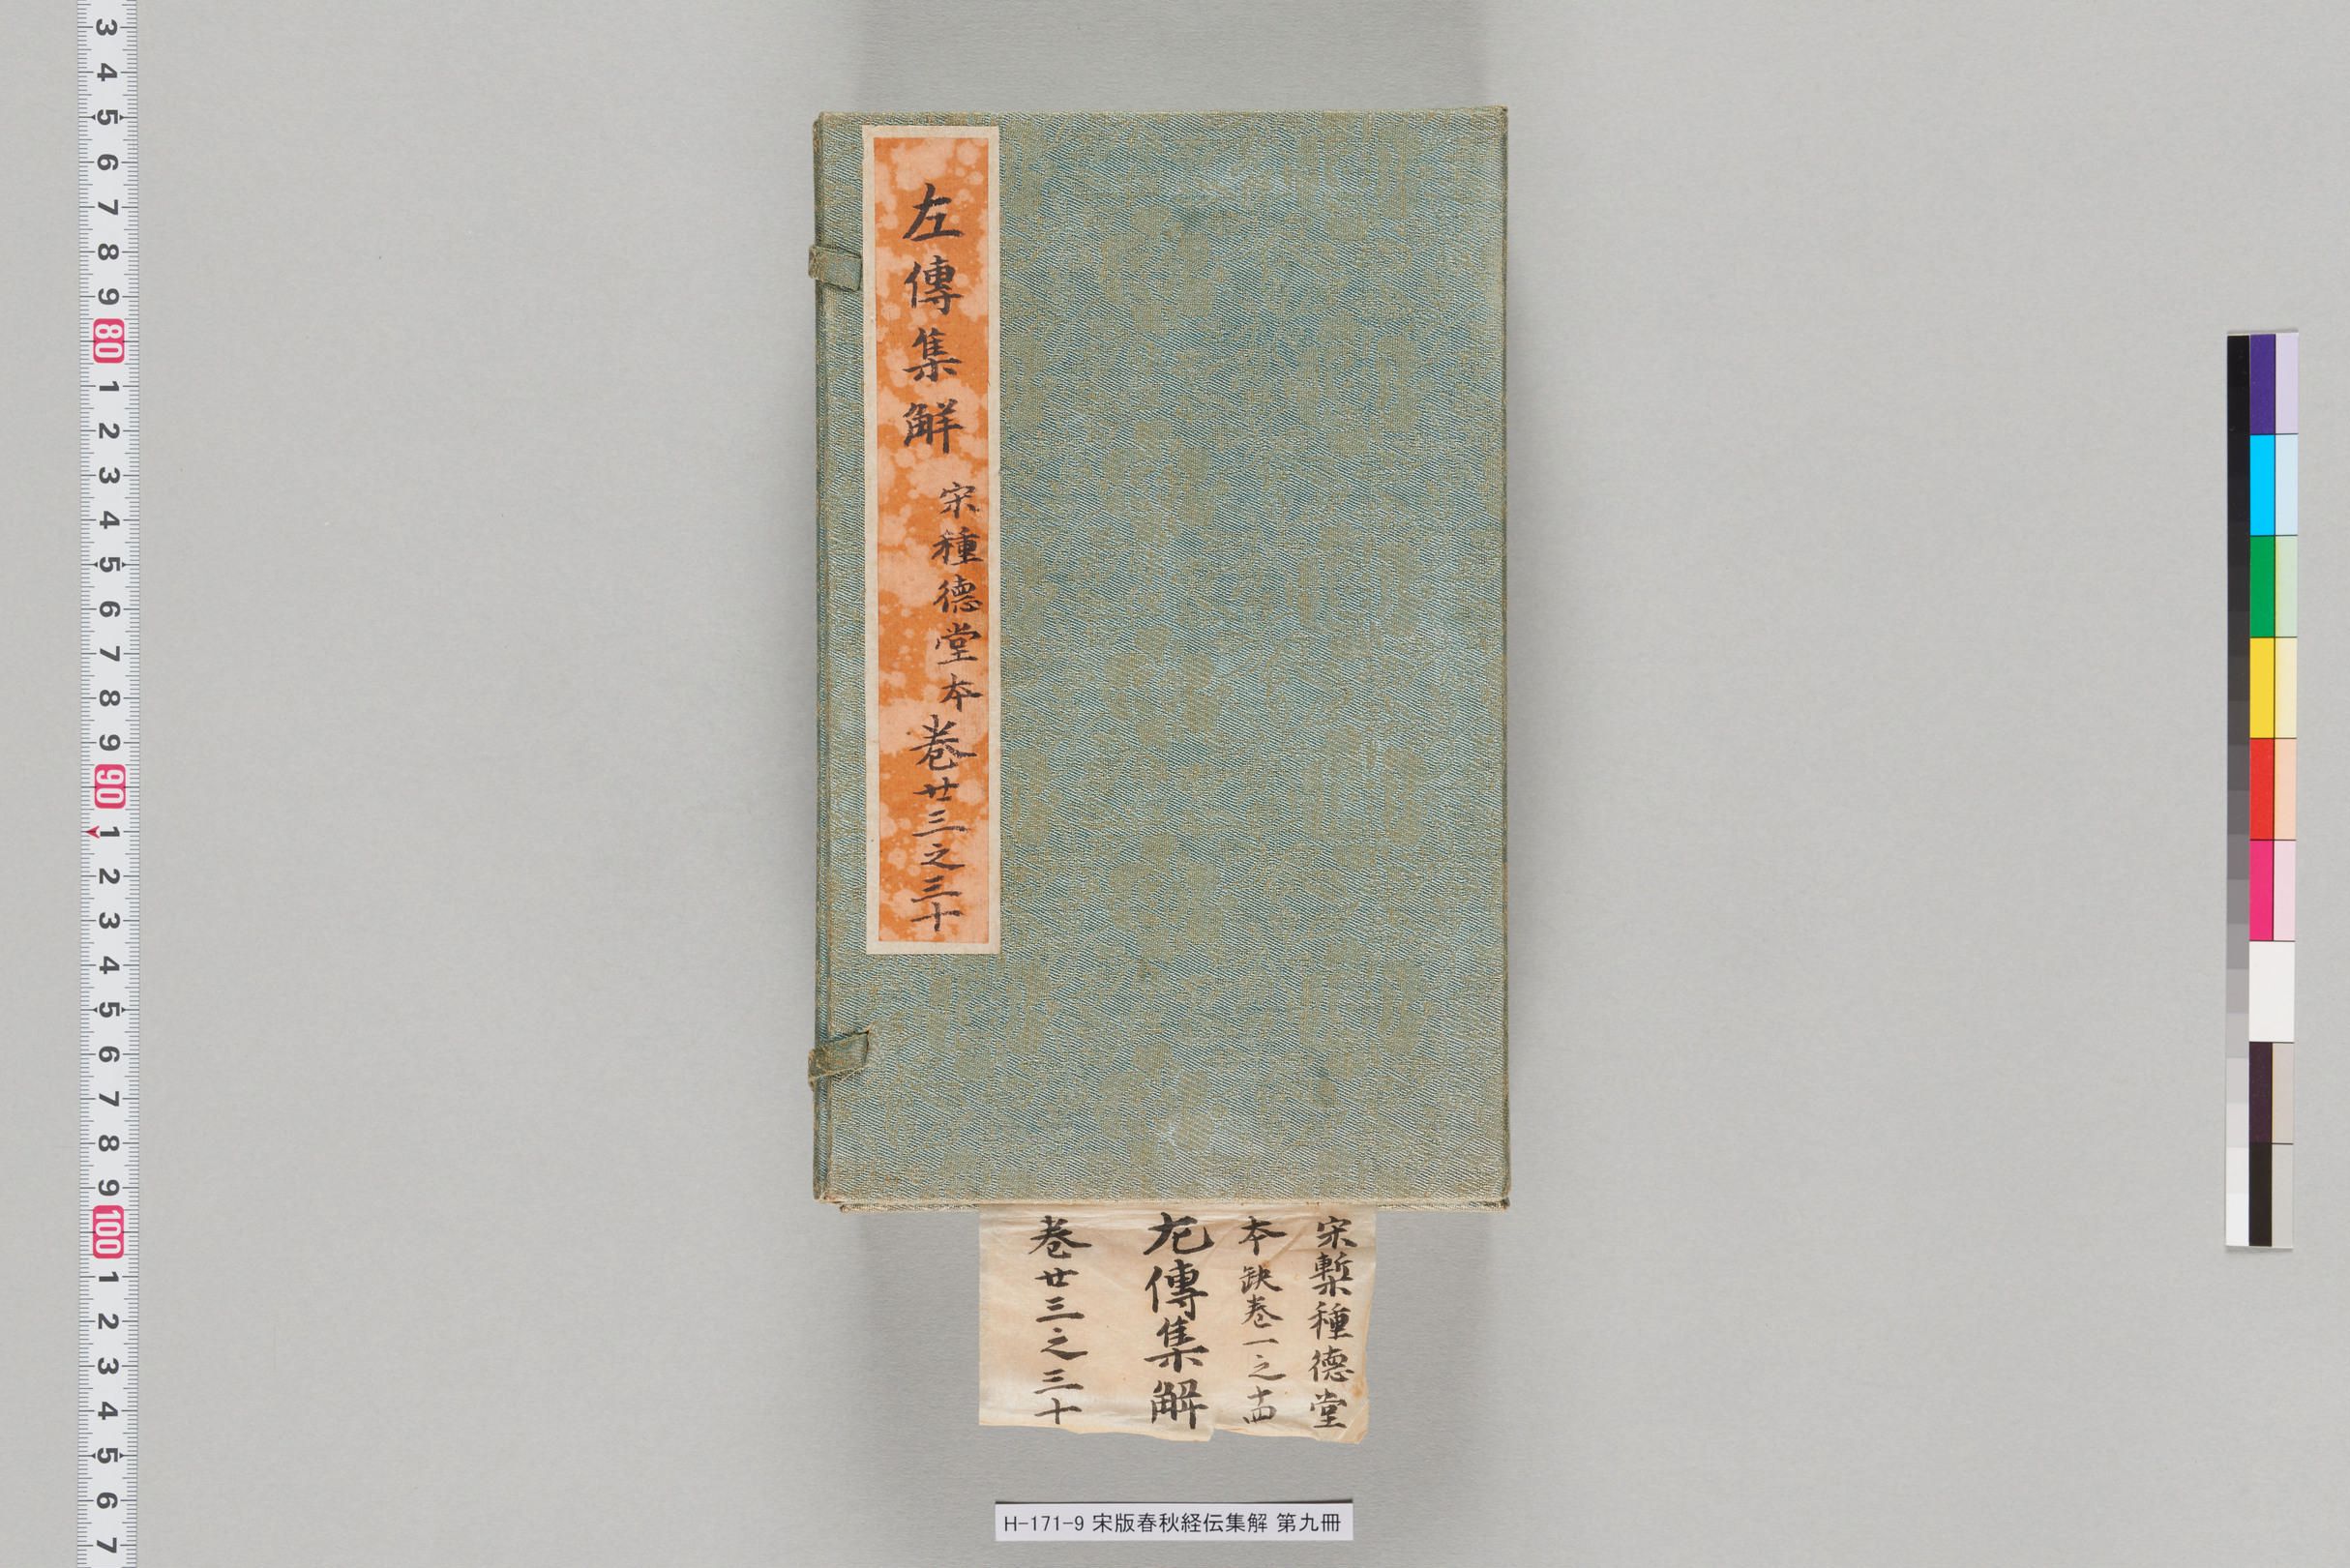 左傳集解
宋種德堂本
卷廿三之三十
宋槧種德堂
本缺卷一之十四
左傳集解
卷廿三之三十
H-171-9 宋版春秋経伝集解 第九冊
3 4 5 6 7 8 9 80 1 2 3 4 5 6 7 8 9 90 1 2 3 4 5 6 7 8 9 100 1 2 3 4 5 6 7